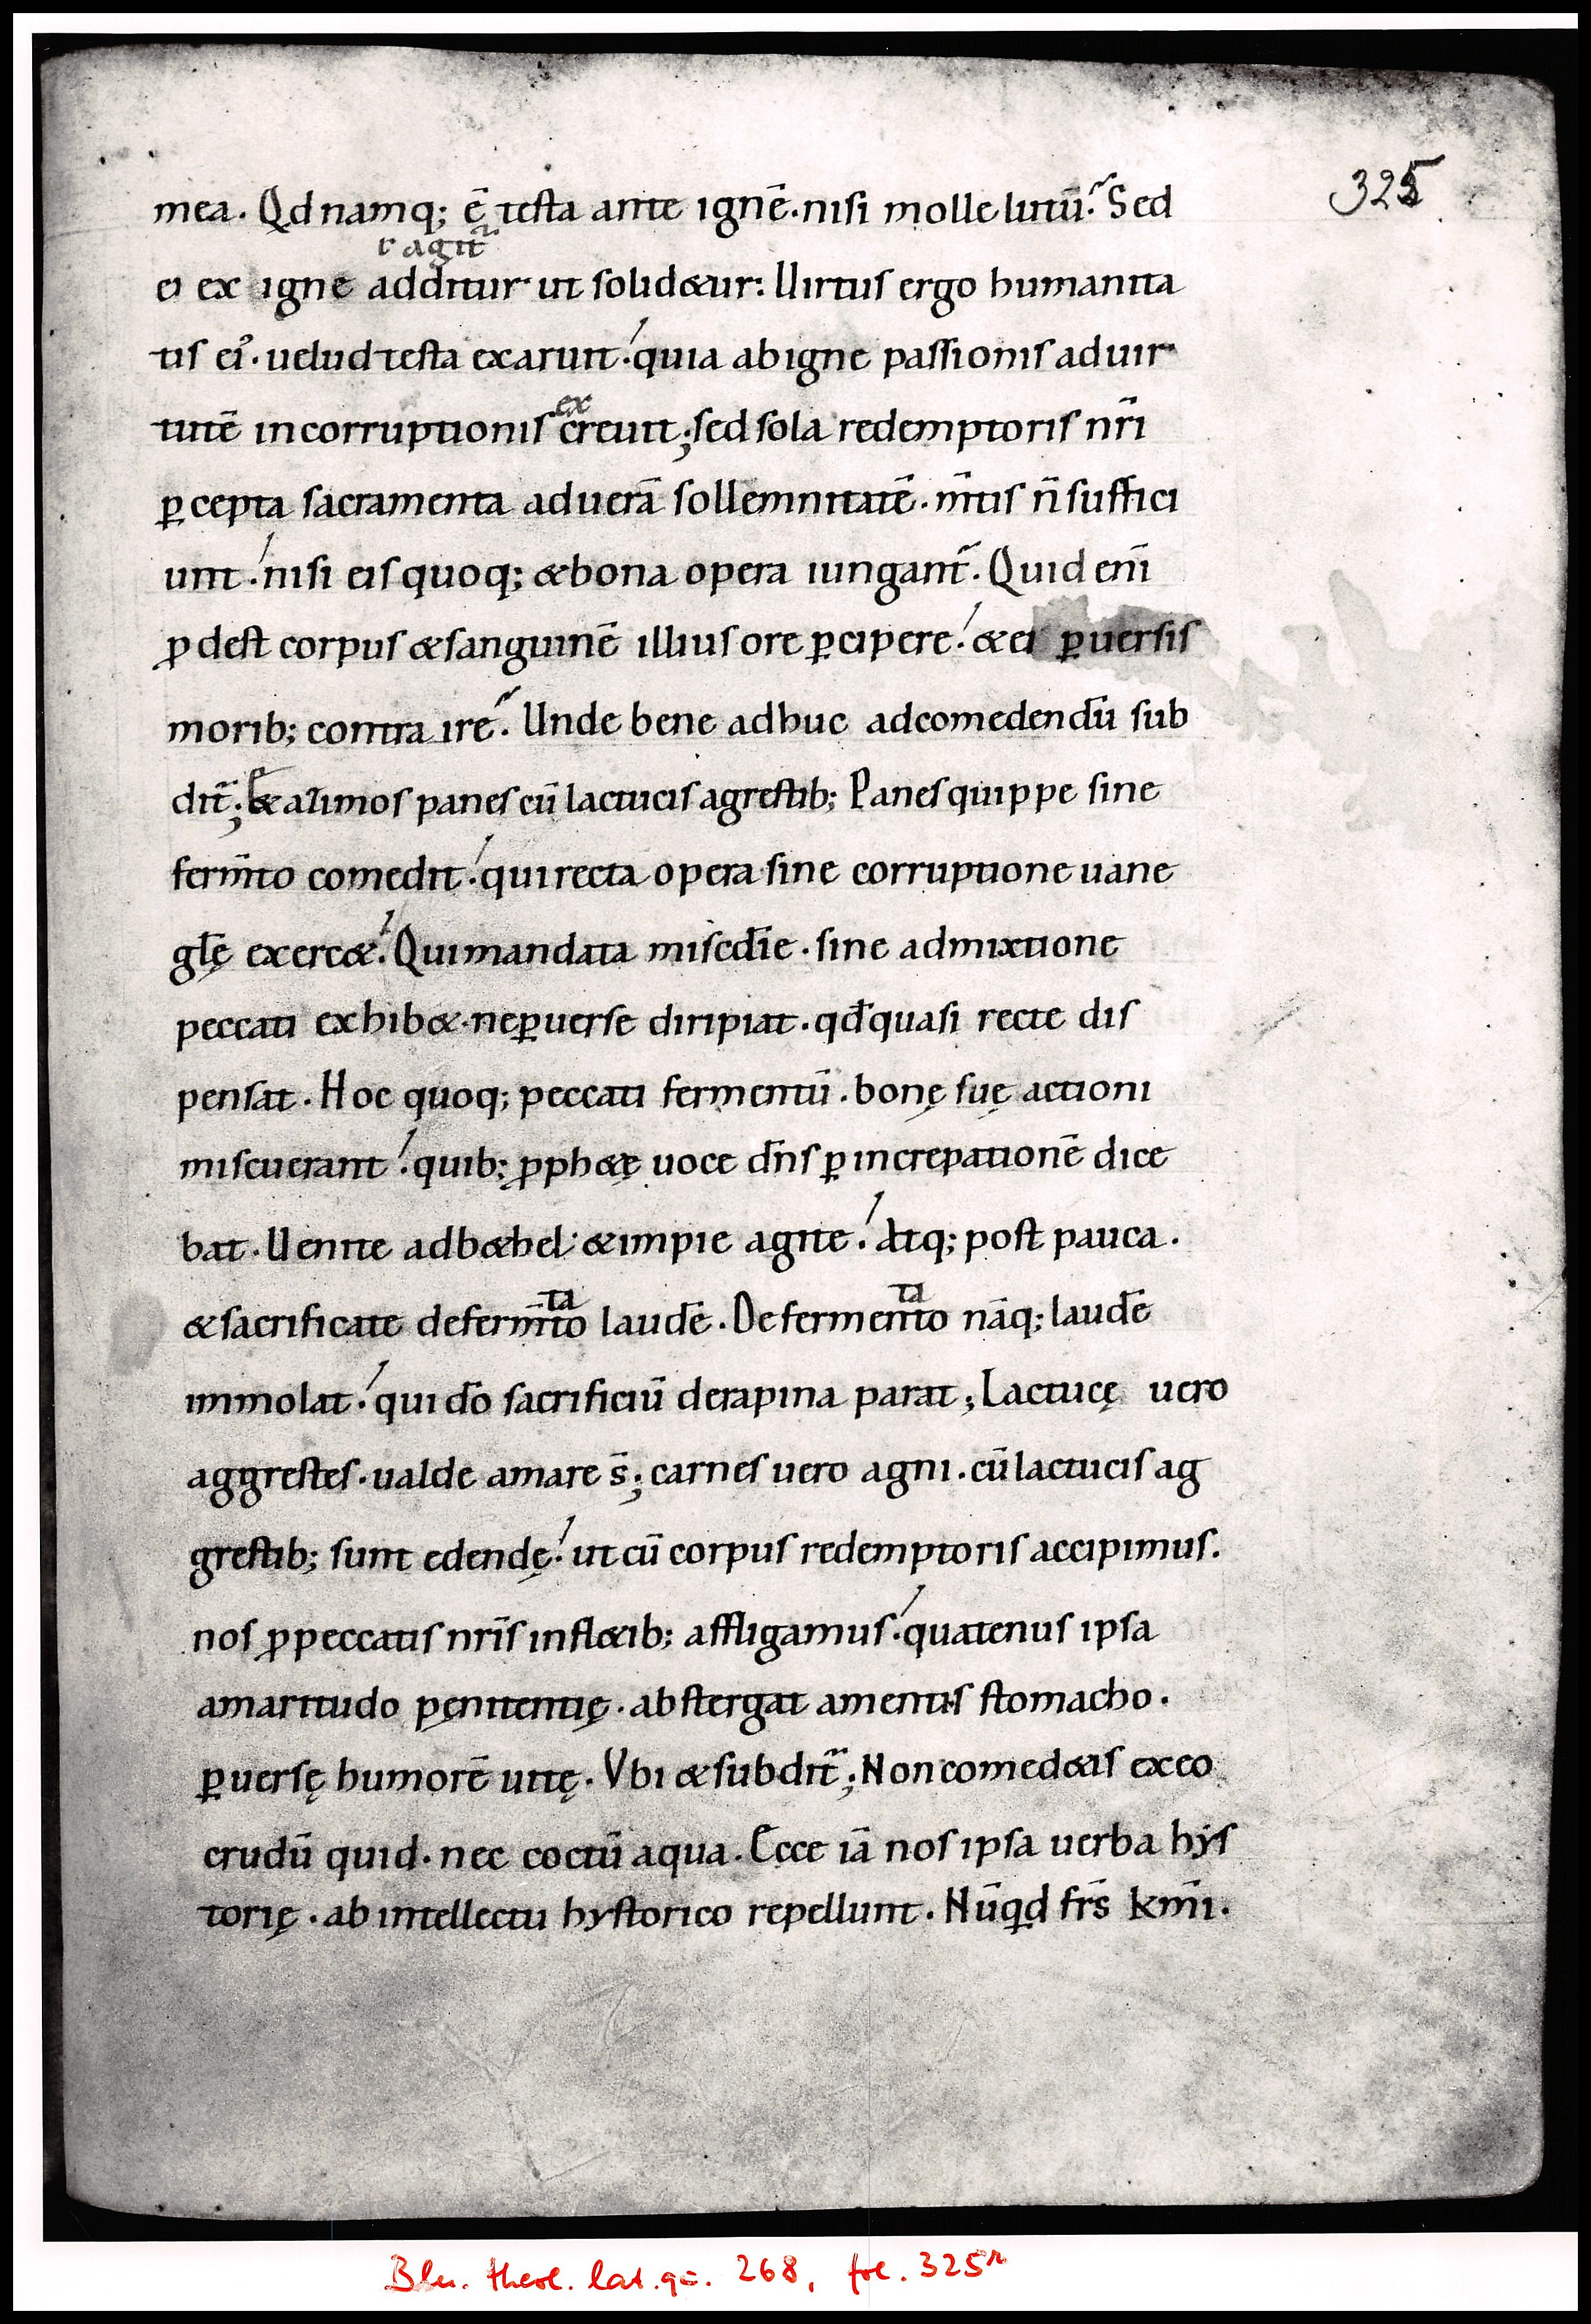 325
mea. Qd namq; ē testa ante ignē. nisi molle lutū. Sed
r agit᷑
ei ex igne additur ut solid&ur. Uirtus ergo humanita
tis ei᷒. uelud testa exaruit. quia ab igne passionis ad uir
ex
tutē incorruptionis creuit; sed sola redemptoris nr̄i
ꝑcepta sacramenta ad uerā sollemnitatē. m̄tis n̄ suffici
unt. nisi eis quoq; & bona opera iungant᷑. Quid eni̅
ꝓdest corpus & sanguinē illius ore ꝑcipere. & ei ꝑuersis
morib; contra ire. Unde bene adhuc ad comedendū sub
dit᷑; & azimos panes cū lactucis agrestib; Panes quippe sine
ferm̄to comedit. qui recta opera sine corruptione uane
gl̄ę exerc&. Qui mandata misc̄die. sine admixtione
peccati exhib&. ne ꝑuerse diripiat. qd̄ quasi recte dis
pensat. Hoc quoq; peccati fermentū. bonę suę actioni
miscuerant. quib; ꝓph&ę uoce dn̄s ꝑ increpationē dice
bat. Uenite ad b&hel & impie agite. Atq; post pauca.
ta ta
& sacrificate de ferm̄to laudē. De fermento nāq; laudē
immolat. qui dō sacrificiū de rapina parat; Lactucę uero
aggrestes. ualde amare s̄; carnes uero agni. cū lactucis ag
grestib; sunt edendę. ut cū corpus redemptoris accipimus.
nos ꝓ peccatis nr̄is in fl&ib; affligamus. quatenus ipsa
amaritudo pęnitentię. abstergat a mentis stomacho.
ꝑuersę humorē uitę. Vbi & subdit᷑; Non comed&is ex eo
crudū quid. nec coctū aqua. Ecce iā nos ipsa uerba hys
torię. ab intellectu hystorico repellunt. Nūqd frs̄ km̄i.
Bln. theol. lat. qº. 268, fol. 325ʳ